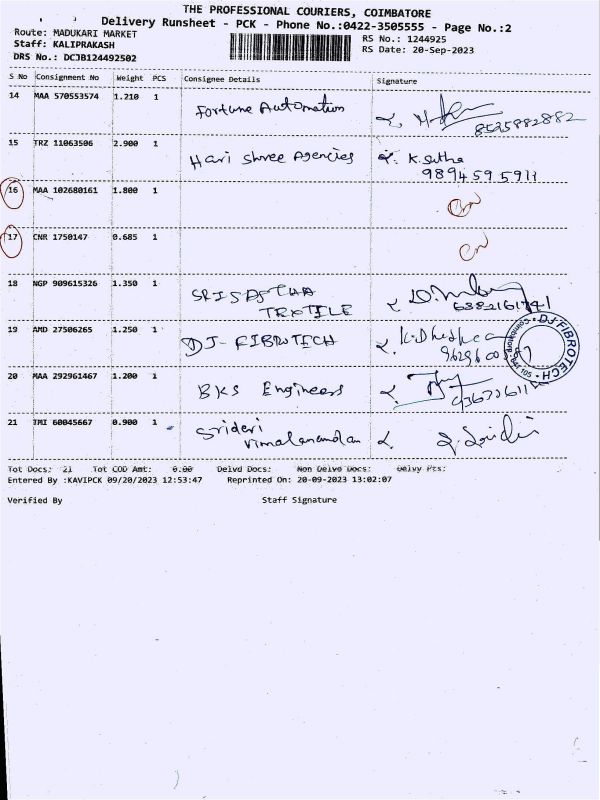 THE PROFESSIONAL COURIERS, COIMBATORE
Delivery Runsheet - PCK - Phone No.:0422-3505555 - Page No.:2
Route: MADUKARI MARKET RS No.: 1244925
Staff: KALIPRAKASH RS Date: 20-Sep-2023
DRS No.: DCJB124492502
S No Consignment No Weight PCS Consignee Details Signature
14 MAA 570553574 1.210 1 Fortune Automation
8525882882
15 TRZ 11063506 2.900 1 Hari Shree Agencies K. Sutha
9894595911
16 MAA 102680161 1.800 1
17 CNR 1750147 0.685 1
18 NGP 909615326 1.350 1 SRI SASTHA
TEXTILE 6382161741
19 AMD 27506265 1.250 1 DJ-FIBROTECH
DJ FIBROTECH
20 MAA 292961467 1.200 1 BKS Engineers
21 TMI 60045667 0.900 1 Sridevi
Vimalanandan
Tot Docs: 21 Tot COD Amt: 0.00 Delvd Docs: Non Delvd Docs: Delvy Pcs:
Entered By :KAVIPCK 09/20/2023 12:53:47 Reprinted On: 20-09-2023 13:02:07
Verified By Staff Signature